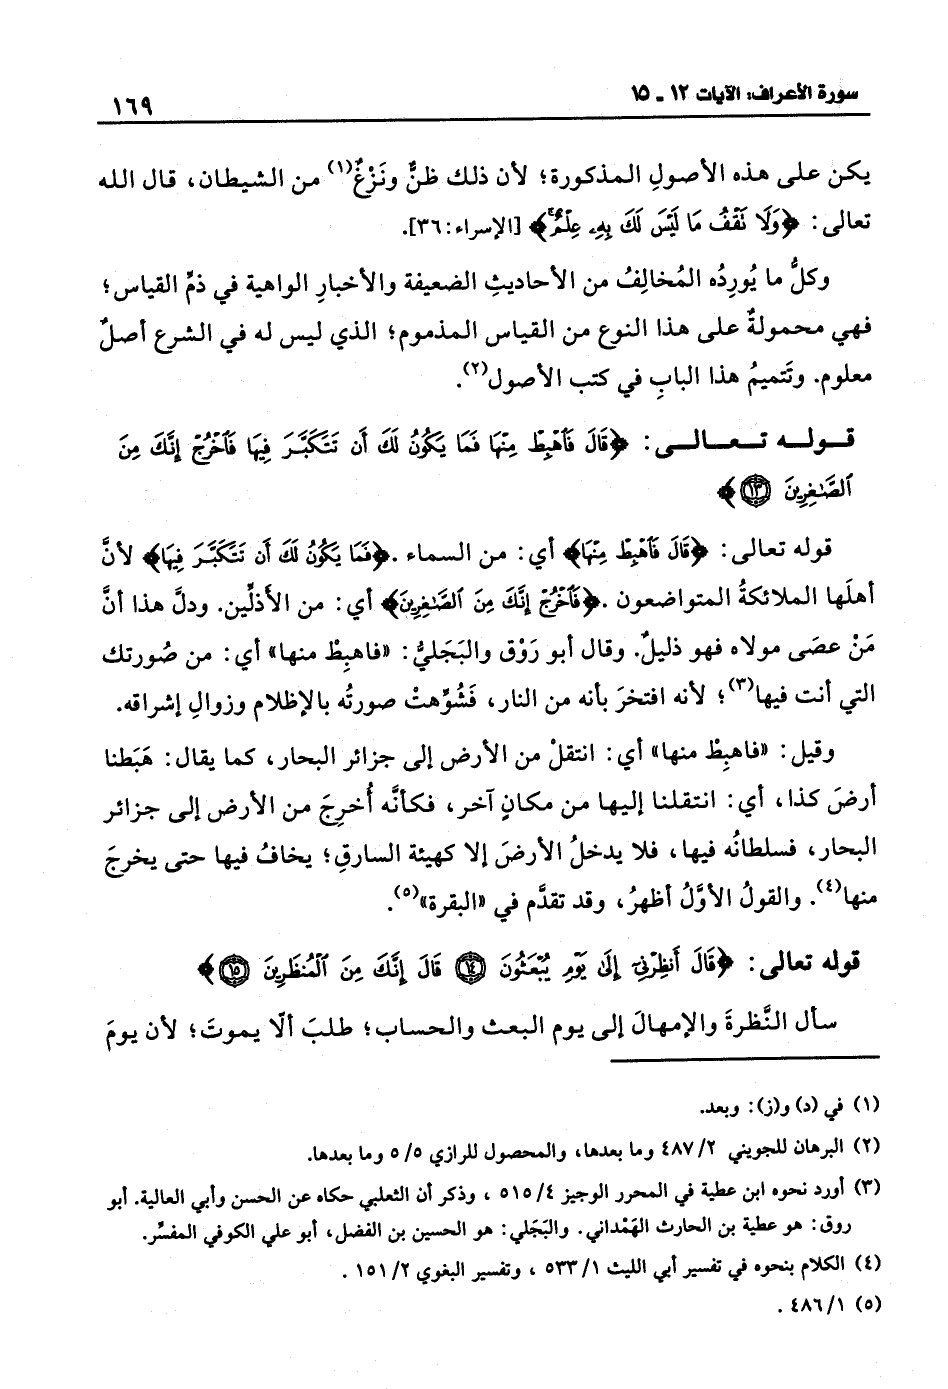 سورة الأعراف: الآيات ١٢ ـ ١٥
١٦٩
يكن على هذه الأصولِ المذكورة؛ لأن ذلك ظنٌّ ونَزْغٌ(١) من الشيطان، قال الله
تعالى: ﴿وَلَا نَقْفُ مَا لَيْسَ لَكَ بِهِۦ عِلْمٌۚ﴾ [الإسراء:٣٦].
وكلُّ ما يُورِدُه المُخالِفُ من الأحاديثِ الضعيفة والأخبارِ الواهية في ذمِّ القياس؛
فهي محمولةٌ على هذا النوع من القياس المذموم؛ الذي ليس له في الشرع أصلٌ
معلوم. وتَتميمُ هذا البابِ في كتب الأصول(٢).
قولـه تـعـالـى: ﴿قَالَ فَٱهْبِطْ مِنْهَا فَمَا يَكُونُ لَكَ أَن تَتَكَبَّرَ فِيهَا فَٱخْرُجْ إِنَّكَ مِنَ
ٱلصَّٰغِرِينَ ١٣﴾
قوله تعالى: ﴿قَالَ فَٱهْبِطْ مِنْهَا﴾ أي: من السماء .﴿فَمَا يَكُونُ لَكَ أَن تَتَكَبَّرَ فِيهَا﴾ لأنَّ
أهلَها الملائكةُ المتواضعون .﴿فَٱخْرُجْ إِنَّكَ مِنَ ٱلصَّٰغِرِينَ﴾ أي: من الأَذلِّين. ودلَّ هذا أنَّ
مَنْ عصَى مولاه فهو ذليلٌ. وقال أبو رَوْق والبَجَليُّ: «فاهبِطْ منها» أي: من صُورتك
التي أنت فيها(٣)؛ لأنه افتخرَ بأنه من النار، فَشُوِّهتْ صورتُه بالإظلام وزوالِ إشراقه.
وقيل: «فاهبِطْ منها» أي: انتقلْ من الأرض إلى جزائر البحار، كما يقال: هَبَطنا
أرضَ كذا، أي: انتقلنا إليها من مكانٍ آخر، فكأنَّه أُخرِجَ من الأرض إلى جزائر
البحار، فسلطانُه فيها، فلا يدخلُ الأرضَ إلا كهيئة السارقِ؛ يخافُ فيها حتى يخرجَ
منها(٤). والقولُ الأوَّلُ أظهرُ، وقد تقدَّم في «البقرة»(٥).
قوله تعالى: ﴿قَالَ أَنظِرْنِىٓ إِلَىٰ يَوْمِ يُبْعَثُونَ ١٤ قَالَ إِنَّكَ مِنَ ٱلْمُنظَرِينَ ١٥﴾
سأل النَّظرةَ والإمهالَ إلى يوم البعث والحساب؛ طلبَ ألّا يموتَ؛ لأن يومَ
(١) في (د) و(ز): وبعد.
(٢) البرهان للجويني ٤٨٧/٢ وما بعدها، والمحصول للرازي ٥/٥ وما بعدها.
(٣) أورد نحوه ابن عطية في المحرر الوجيز ٥١٥/٤ ، وذكر أن الثعلبي حكاه عن الحسن وأبي العالية. أبو
روق: هو عطية بن الحارث الهَمْداني. والبَجَلي: هو الحسين بن الفضل، أبو علي الكوفي المفسِّر.
(٤) الكلام بنحوه في تفسير أبي الليث ٥٣٣/١ ، وتفسير البغوي ١٥١/٢ .
(٥) ٤٨٦/١ .